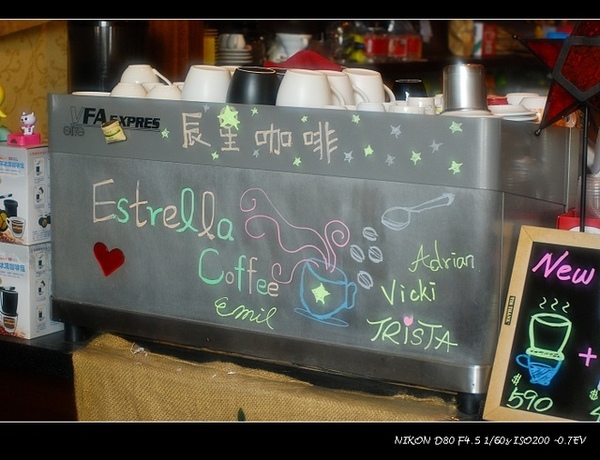 VFA EXPRES
辰星咖啡
Estrella
Coffee
Emil
Adrian
Vicki
TRiSTA
New
+
$590
NIKON D80 F4.5 1/60s ISO200 -0.7EV